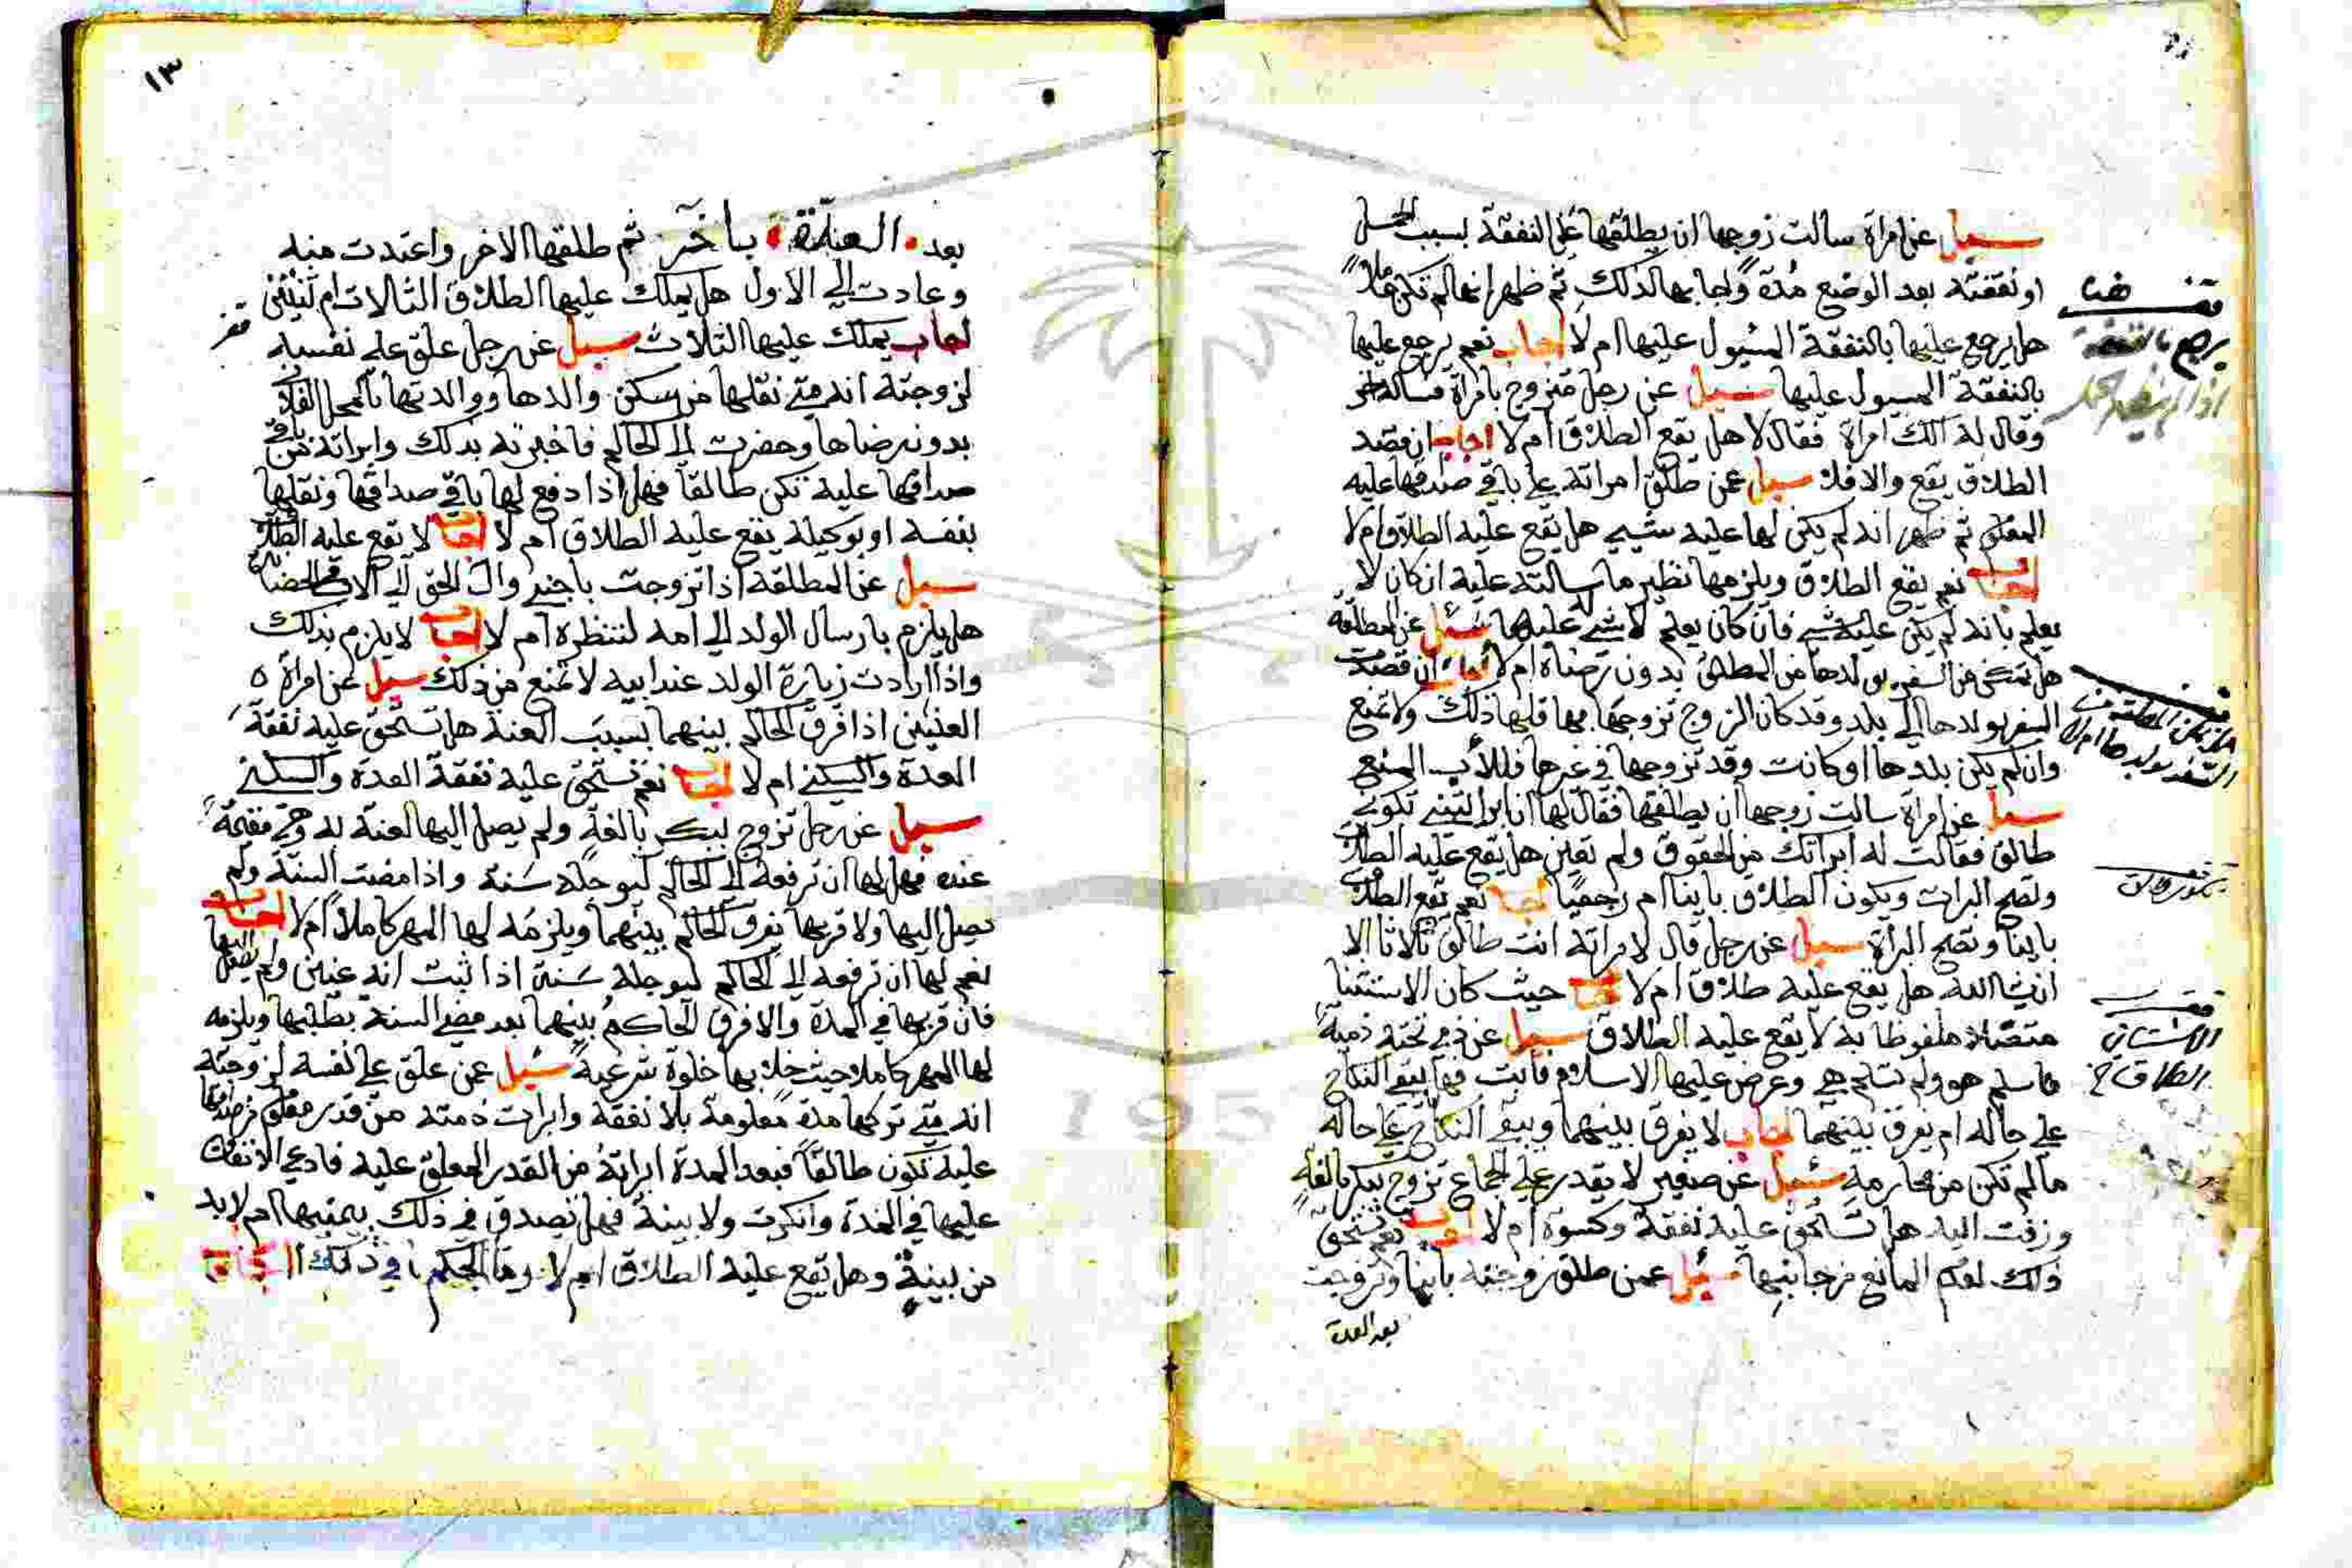 سيل عن امراة سالت زوجها ان يطلقها على النفقة بسبب الحمل
او نفقته بعد الوضع مدة واجابها لذلك ثم ظهر انها لم تكن حاملا
هل يرجع عليها بالنفقة المسيول عليها ام لا اجاب نعم يرجع عليها
بالنفقة المسيول عليها سيل عن رجل متزوج بامراة فساله اخر
وقال له الك امراة فقال لا هل يقع الطلاق ام لا اجاب ان قصد
الطلاق يقع والا فلا سيل عمن طلق امراته على باقي صداقها عليه
المعلوم ثم ظهر انه لم يكن لها عليه شيء هل يقع عليه الطلاق ام لا
اجاب نعم يقع الطلاق ويلزمها نظير ما سالته عليه ان كان لا
يعلم بانه لم يكن عليه شي فان كان يعلم لا شي له عليها سئل عن المطلقة
هل تتمكن من السفر بولدها من المطلق بدون رضاه ام لا اجاب ان قصدت
السفر بولدها الى بلد وقد كان الزوج تزوجها بها فلها ذلك ولا تمنع
وان لم يكن بلدها او كانت وقد تزوجها في غيرها فللأب المنع
سيل عن امراة سالت زوجها ان يطلقها فقال لها ان ابراتيني تكوني
طالق فقالت له ابراتك من الحقوق ولم تعين هل يقع عليه الطلاق
وتصح البرات ويكون الطلاق باينا ام رجعيا اجاب نعم يقع الطلاق
باينا وتصح البراة سيل عن رجل قال لامراته انت طالق ثلاثا الا
ان شا الله هل يقع عليه طلاق ام لا اجاب حيث كان الاستثنا
متصلا ملفوظا به لا يقع عليه الطلاق سيل عن ذمي تحته ذمية
فاسلم هو ولم تسلم هي وعرض عليها الاسلام فابت فهل يبقى النكاح
على حاله ام يفرق بينهما اجاب لا يفرق بينهما ويبقى النكاح على حاله
ما لم تكن من محارمه سئل عن صغير لا يقدر على الجماع تزوج ببكر بالغة
وزفت اليه هل تستحق عليه نفقة وكسوة ام لا اجاب نعم تستحق
ذلك لعدم المانع من جانبها سئل عمن طلق زوجته باينا وتزوجت
بعد العدة
هنا
يرجع بالنفقة
السفر بولدها ام لا
الطلاق
١٣
بعد العدة بآخر ثم طلقها الاخر واعتدت منه
وعادت الى الاول هل يملك عليها الطلاق الثالات ام ثنتين
اجاب يملك عليها الثلاث سيل عن رجل علق على نفسه
لزوجته انه متى نقلها من سكن والدها ووالدتها بالمحل الفلاني
بدون رضاها وحضرت الى الحاكم فاخبرته بذلك وابراته من باقي
صداقها عليه تكن طالقا فهل اذا دفع لها باقي صداقها ونقلها
بنفسه او بوكيله يقع عليه الطلاق ام لا اجاب لا يقع عليه الطلاق
سيل عن المطلقة اذا تزوجت باجنبي وال الحق الى الاب في الحضانة
هل يلزم بارسال الولد الى امه لتنظره ام لا اجاب لا يلزم بذلك
واذا ارادت زيارة الولد عند ابيه لا تمنع من ذلك سيل عن امراة
العنين اذا فرق الحاكم بينهما بسبب العنة هل تستحق عليه نفقة
العدة والسكنى ام لا اجاب نعم تستحق عليه نفقة العدة والسكنى
سيل عن رجل تزوج ببكر بالغة ولم يصل اليها لعنة به وهي مقيمة
عنده فهل لها ان ترفعه الى الحاكم ليوجله سنة واذا مضت السنة ولم
يصل اليها ولا قربها يفرق الحاكم بينهما ويلزمه لها المهر كاملا ام لا اجاب
نعم لها ان ترفعه الى الحاكم ليوجله سنة اذا ثبت انه عنين ولم يصل اليها
فان قربها في المدة والا فرق الحاكم بينهما بعد مضي السنة بطلبها ويلزمه
لها المهر كاملا حيث خلا بها خلوة شرعية سئل عمن علق على نفسه لزوجته
انه متى تركها مدة معلومة بلا نفقة وابرات ذمته من قدر معلوم من صداقها
عليه تكون طالقا فبعد المدة ابراته من القدر المعلق عليه فادعى الانفاق
عليها في المدة وانكرت ولا بينة فهل تصدق في ذلك بيمينها ام لا بد
من بينة وهل يقع عليه الطلاق ام لا وما الحكم في ذلك اجاب